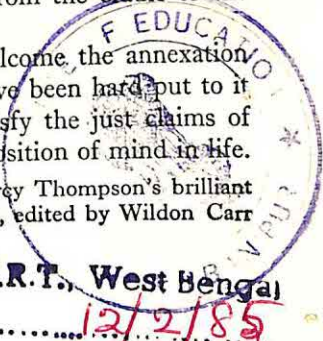 from the
F EDUCATIO
lcome the annexation
ve been hard put to it
sfy the just claims of
osition of mind in life.
rcy Thompson's brilliant
, edited by Wildon Carr
.R.T., West Bengal
12/2/85